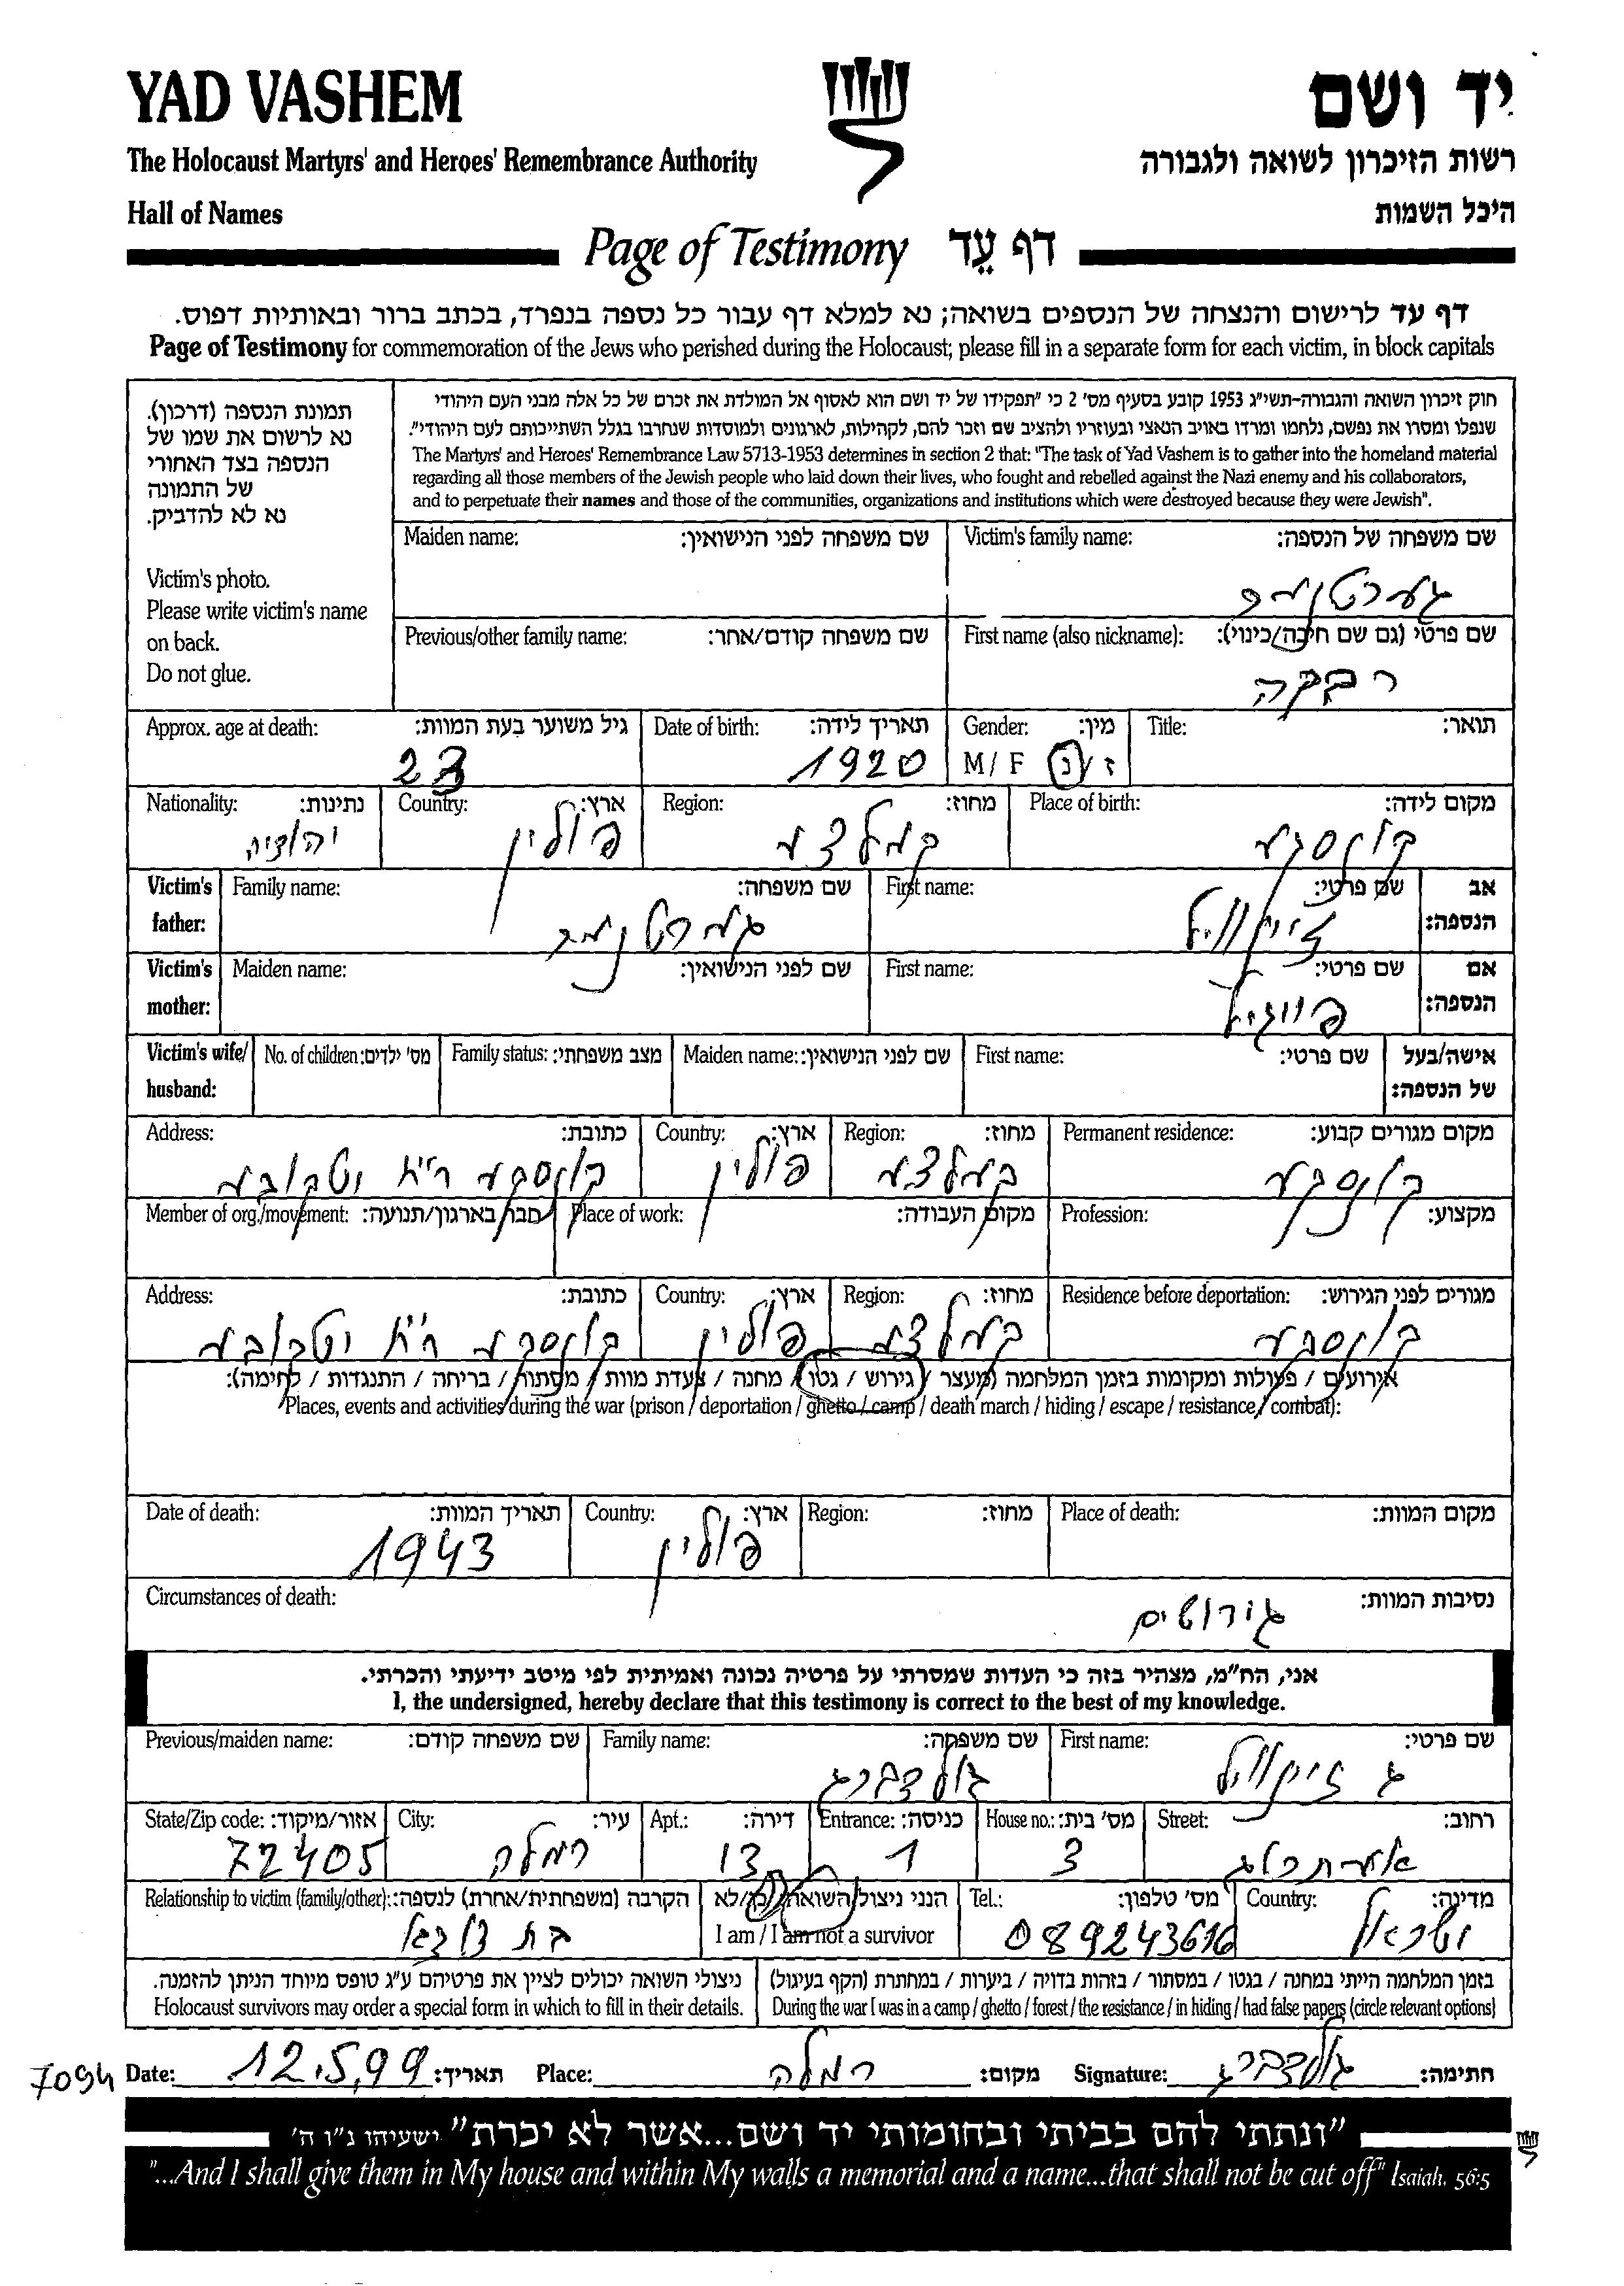 YAD VASHEM
יד ושם
The Holocaust Martyrs' and Heroes' Remembrance Authority
רשות הזיכרון לשואה ולגבורה
Hall of Names
היכל השמות
Page of Testimony דף עֵד
דף עד לרישום והנצחה של הנספים בשואה; נא למלא דף עבור כל נספה בנפרד, בכתב ברור ובאותיות דפוס.
Page of Testimony for commemoration of the Jews who perished during the Holocaust; please fill in a separate form for each victim, in block capitals
תמונת הנספה (דרכון).
נא לרשום את שמו של
הנספה בצד האחורי
של התמונה
נא לא להדביק.
Victim's photo.
Please write victim's name
on back.
Do not glue.
חוק זיכרון השואה והגבורה-תשי״ג 1953 קובע בסעיף מס׳ 2 כי ״תפקידו של יד ושם הוא לאסוף אל המולדת את זכרם של כל אלה מבני העם היהודי
שנפלו ומסרו את נפשם, נלחמו ומרדו באויב הנאצי ובעוזריו ולהציב שם וזכר להם, לקהילות, לארגונים ולמוסדות שנחרבו בגלל השתייכותם לעם היהודי״.
The Martyrs' and Heroes' Remembrance Law 5713-1953 determines in section 2 that: "The task of Yad Vashem is to gather into the homeland material
regarding all those members of the Jewish people who laid down their lives, who fought and rebelled against the Nazi enemy and his collaborators,
and to perpetuate their names and those of the communities, organizations and institutions which were destroyed because they were Jewish".
Maiden name: שם משפחה לפני הנישואין: Victim's family name: שם משפחה של הנספה:
Previous/other family name: שם משפחה קודם/אחר: First name (also nickname): שם פרטי (גם שם חיבה/כינוי):
רבקה
Approx. age at death: גיל משוער בעת המוות: Date of birth: תאריך לידה: Gender: מין: Title: תואר:
23 1920 M/ F ז/נ
Nationality: נתינות: Country: ארץ: Region: מחוז: Place of birth: מקום לידה:
יהודיה פולין
Victim's father: Family name: שם משפחה: First name: שם פרטי: אב הנספה:
Victim's mother: Maiden name: שם לפני הנישואין: First name: שם פרטי: אם הנספה:
Victim's wife/ husband: No. of children: מס׳ ילדים: Family status: מצב משפחתי: Maiden name: שם לפני הנישואין: First name: שם פרטי: אישה/בעל של הנספה:
Address: כתובת: Country: ארץ: Region: מחוז: Permanent residence: מקום מגורים קבוע:
פולין
Member of org./movement: חבר בארגון/תנועה: Place of work: מקום העבודה: Profession: מקצוע:
Address: כתובת: Country: ארץ: Region: מחוז: Residence before deportation: מגורים לפני הגירוש:
פולין
אירועים / פעולות ומקומות בזמן המלחמה (מעצר / גירוש / גטו / מחנה / צעדת מוות / מסתור / בריחה / התנגדות / לחימה):
Places, events and activities during the war (prison / deportation / ghetto / camp / death march / hiding / escape / resistance / combat):
Date of death: תאריך המוות: Country: ארץ: Region: מחוז: Place of death: מקום המוות:
1943 פולין
Circumstances of death: נסיבות המוות:
גירושים
אני, הח״מ, מצהיר בזה כי העדות שמסרתי על פרטיה נכונה ואמיתית לפי מיטב ידיעתי והכרתי.
I, the undersigned, hereby declare that this testimony is correct to the best of my knowledge.
Previous/maiden name: שם משפחה קודם: Family name: שם משפחה: First name: שם פרטי:
גולדברג
State/Zip code: אזור/מיקוד: City: עיר: Apt.: דירה: Entrance: כניסה: House no.: מס׳ בית: Street: רחוב:
72405 רמלה 13 1 3
Relationship to victim (family/other): הקרבה (משפחתית/אחרת) לנספה: הנני ניצול השואה כן/לא Tel.: מס׳ טלפון: Country: מדינה:
I am / I am not a survivor 089243616 ישראל
ניצולי השואה יכולים לציין את פרטיהם ע״ג טופס מיוחד הניתן להזמנה. בזמן המלחמה הייתי במחנה / בגטו / במסתור / בזהות בדויה / ביערות / במחתרת (הקף בעיגול)
Holocaust survivors may order a special form in which to fill in their details. During the war I was in a camp / ghetto / forest / the resistance / in hiding / had false papers (circle relevant options)
7094 Date: 12.5.99 תאריך: Place: רמלה מקום: Signature: גולדברג חתימה:
״ונתתי להם בביתי ובחומותי יד ושם...אשר לא יכרת״ ישעיהו נ״ו ה׳
"...And I shall give them in My house and within My walls a memorial and a name...that shall not be cut off" Isaiah. 56:5